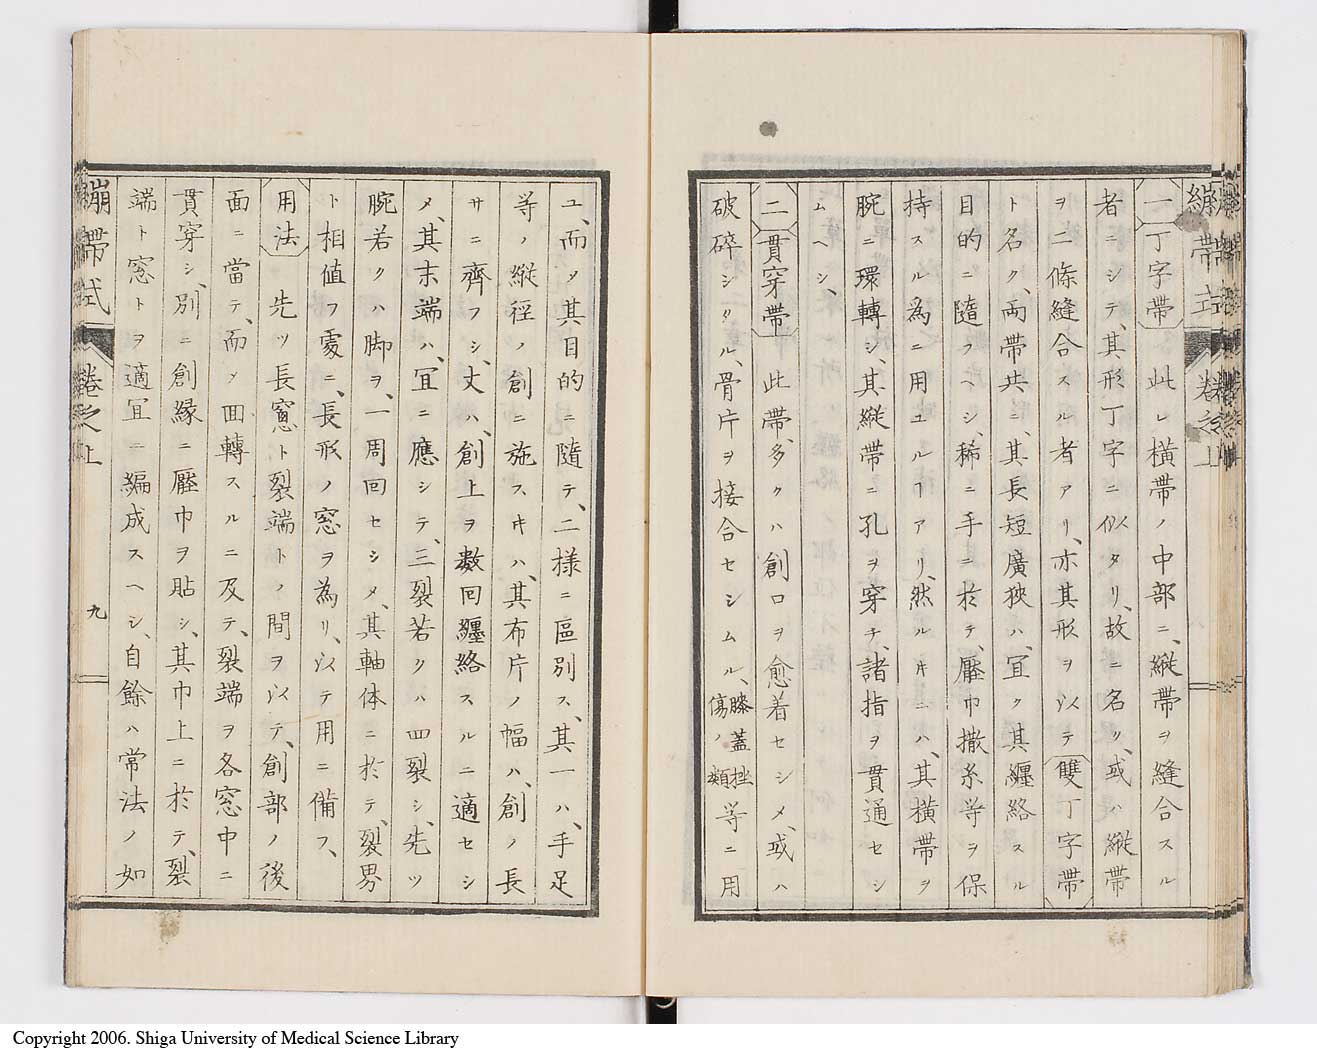 繃帯式 卷之上
一丁字帶 此レ横帶ノ中部ニ、縦帶ヲ縫合スル
者ニシテ、其形丁字ニ似タリ、故ニ名ク、或ハ縦帶
ヲ二條縫合スル者アリ、亦其形ヲ以テ雙丁字帶
ト名ク、両帶共ニ、其長短廣狹ハ、冝ク其纏絡スル
目的ニ隨フヘシ、稀ニ手ニ於テ、壓巾撒糸等ヲ保
持スル為ニ用ユルヿアリ、然ルキニハ、其横帶ヲ
腕ニ環轉シ、其縦帶ニ孔ヲ穿チ、諸指ヲ貫通セシ
ムヘシ、
二貫穿帶 此帶、多クハ創口ヲ愈着セシメ、或ハ
破碎シタル、骨片ヲ接合セシムル、膝蓋挫傷ノ類等ニ用
ユ、而メ其目的ニ隨テ、二様ニ區別ス、其一ハ、手足
等ノ縦徑ノ創ニ施スキハ、其布片ノ幅ハ、創ノ長
サニ齊フシ、丈ハ、創上ヲ数回纏絡スルニ適セシ
メ、其末端ハ、冝ニ應シテ、三裂若クハ四裂シ、先ツ
腕若クハ脚ヲ、一周回セシメ、其軸体ニ於テ、裂界
ト相値フ處ニ、長形ノ窓ヲ為リ、以テ用ニ備フ、
用法 先ツ長窓ト裂端トノ間ヲ以テ、創部ノ後
面ニ當テ、而メ囬轉スルニ及テ、裂端ヲ各窓中ニ
貫穿シ、別ニ創縁ニ壓巾ヲ貼シ、其巾上ニ於テ、裂
端ト窓トヲ適冝ニ編成スヘシ、自餘ハ常法ノ如
繃帯式 卷之上 九
Copyright 2006. Shiga University of Medical Science Library